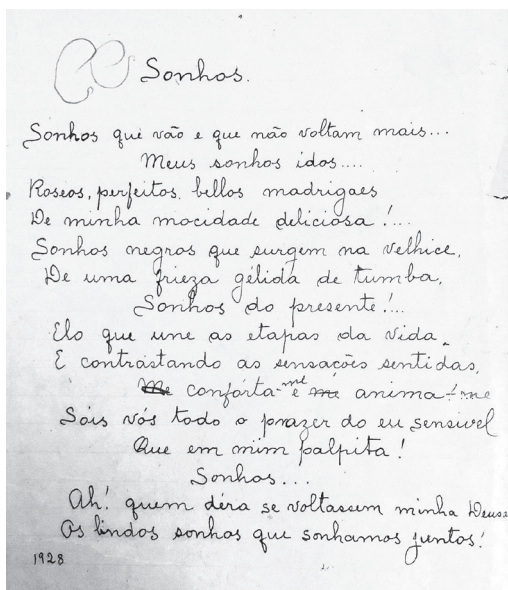 Sonhos.
Sonhos que vão e que não voltam mais...
Meus sonhos idos....
Roseos, perfeitos, bellos madrigaes
De minha mocidade deliciosa!...
Sonhos negros que surgem na velhice,
De uma frieza gélida de tumba,
Sonhos do presente!...
Elo que une as etapas da vida
E contrastando as sensações sentidas,
Me conforta-me e me anima-me
Sois vós todo o prazer do eu sensivel
Que em mim palpita!
Sonhos...
Ah! quem déra se voltassem minha Deusa
Os lindos sonhos que sonhamos juntos!
1928